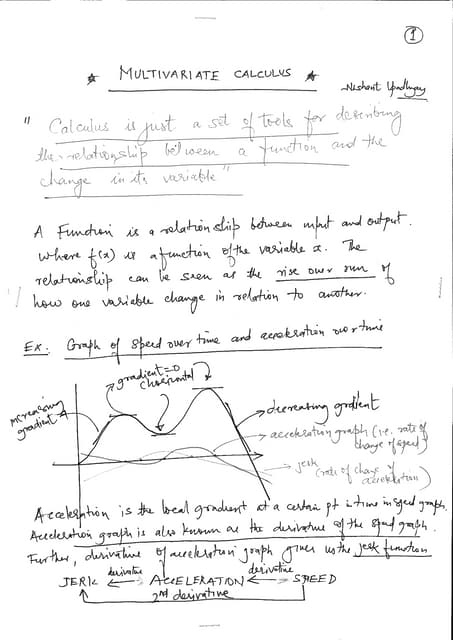 1
★ MULTIVARIATE CALCULUS ★
- Nishant Upadhyay
"Calculus is just a set of tools for describing
the relationship between a function and the
change in its variable"
A Function is a relationship between input and output.
where f(x) is a function of the variable x. The
relationship can be seen as the rise over run of
how one variable change in relation to another.
Ex: Graph of speed over time and acceleration over time
gradient=0
(horizontal)
increasing
gradient
decreasing gradient
acceleration graph (i.e. rate of
change of speed)
jerk
(rate of change of
acceleration)
Acceleration is the local gradient at a certain pt in time in speed graph.
Acceleration graph is also known as the derivative of the speed graph.
Further, derivative of acceleration graph gives us the jerk function
derivative derivative
JERK ← ACCELERATION ← SPEED
2nd derivative